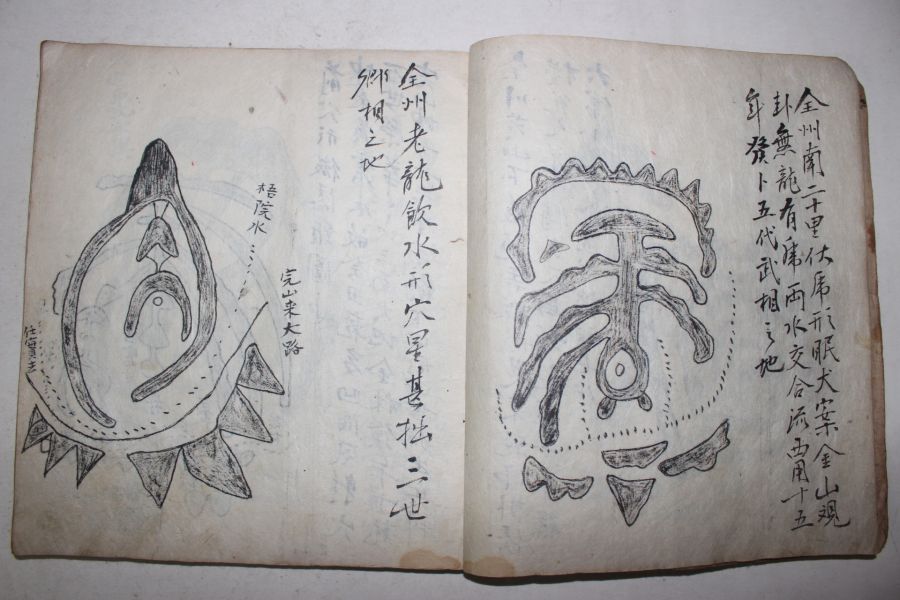 全州南二十里伏乕形眠犬案金山觀
卦無龍有乕両水交合流酉用十五
年發卜五代武相之地
全州老龍飲水形穴星甚拙三世
卿相之地
梧院水
完山来大路
任實主